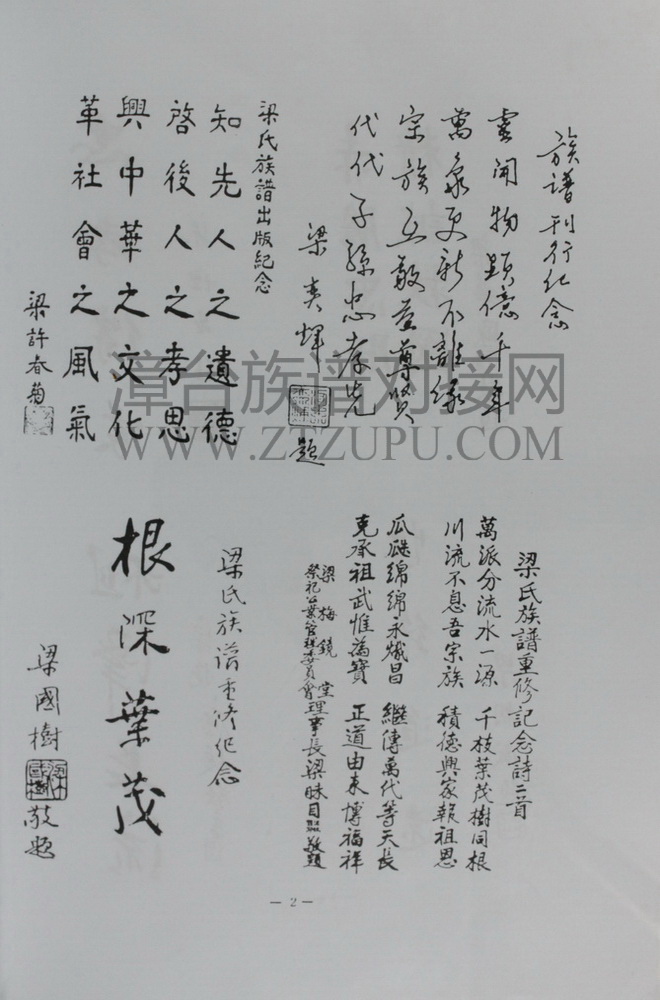 族譜刊行纪念
雲開物顯億千年
萬象更新不離緣
宗族互敬並尊賢
代代子孫忠孝先
梁奕輝 題
梁氏族譜出版紀念
知先人之遺德
啓後人之孝思
興中華之文化
革社會之風氣
梁許春菊
梁氏族譜重修記念詩二首
萬派分流水一源 千枝葉茂樹同根
川流不息吾宗族 積德興家報祖恩
瓜瓞綿綿永熾昌 繼傳萬代等天長
克承祖武惟為寶 正道由来博福祥
梁梅鏡堂
祭祀公業管理委員會理事長梁
敬題
梁氏族譜重修纪念
根深葉茂
梁國樹 敬題
— 2 —
漳台族谱对接网
WWW.ZTZUPU.COM